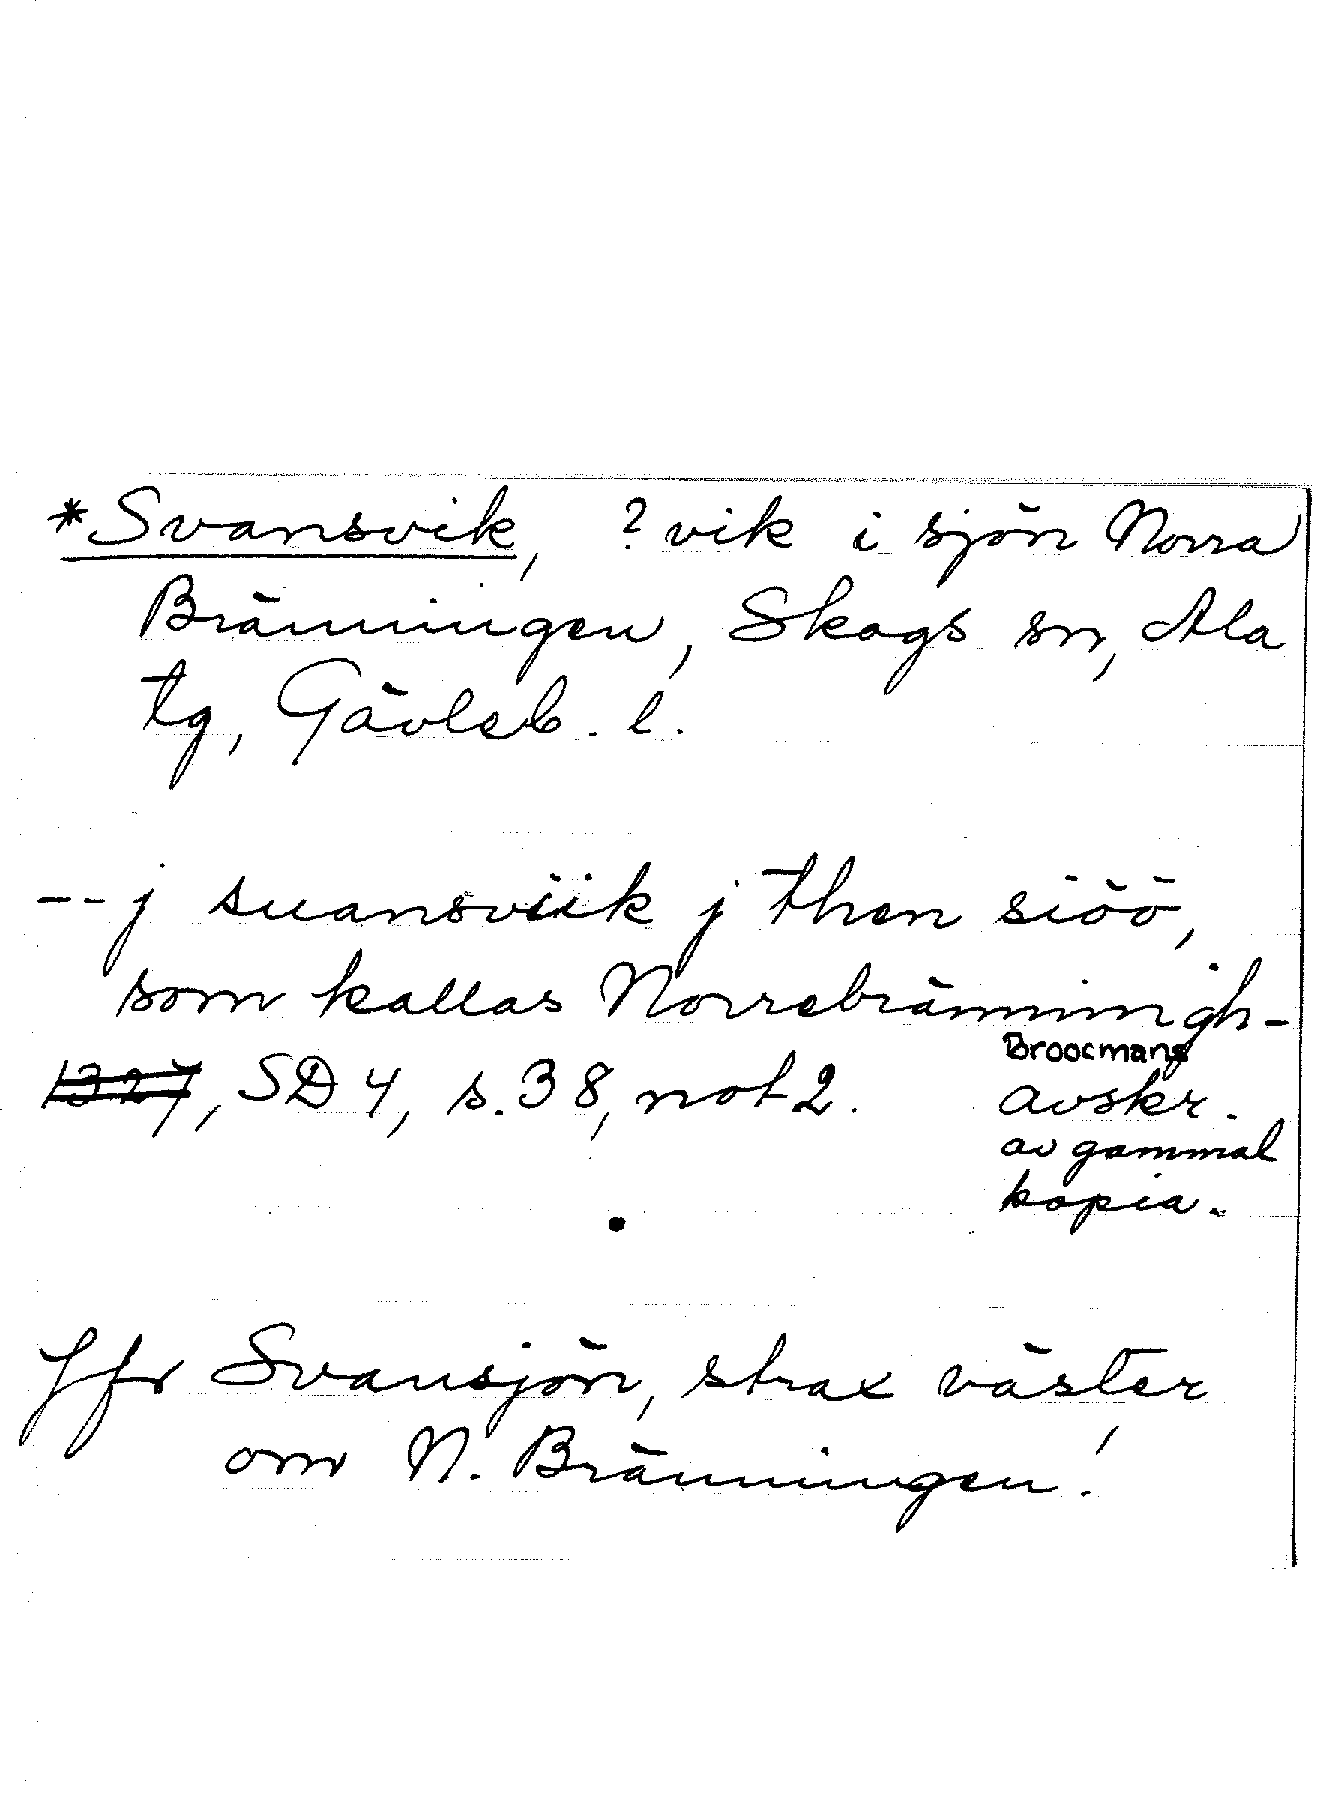 *Svansvik, ? vik i sjön Norra
Bränningen, Skogs sn, Ala
tg, Gävleb. l.
-- j suansviik j then siöö,
som kallas Norrebränningh -
1327, SD 4, s. 38, not 2.
Broocmans
avskr.
av gammal
kopia.
Jfr Svansjön, strax väster
om N. Bränningen!